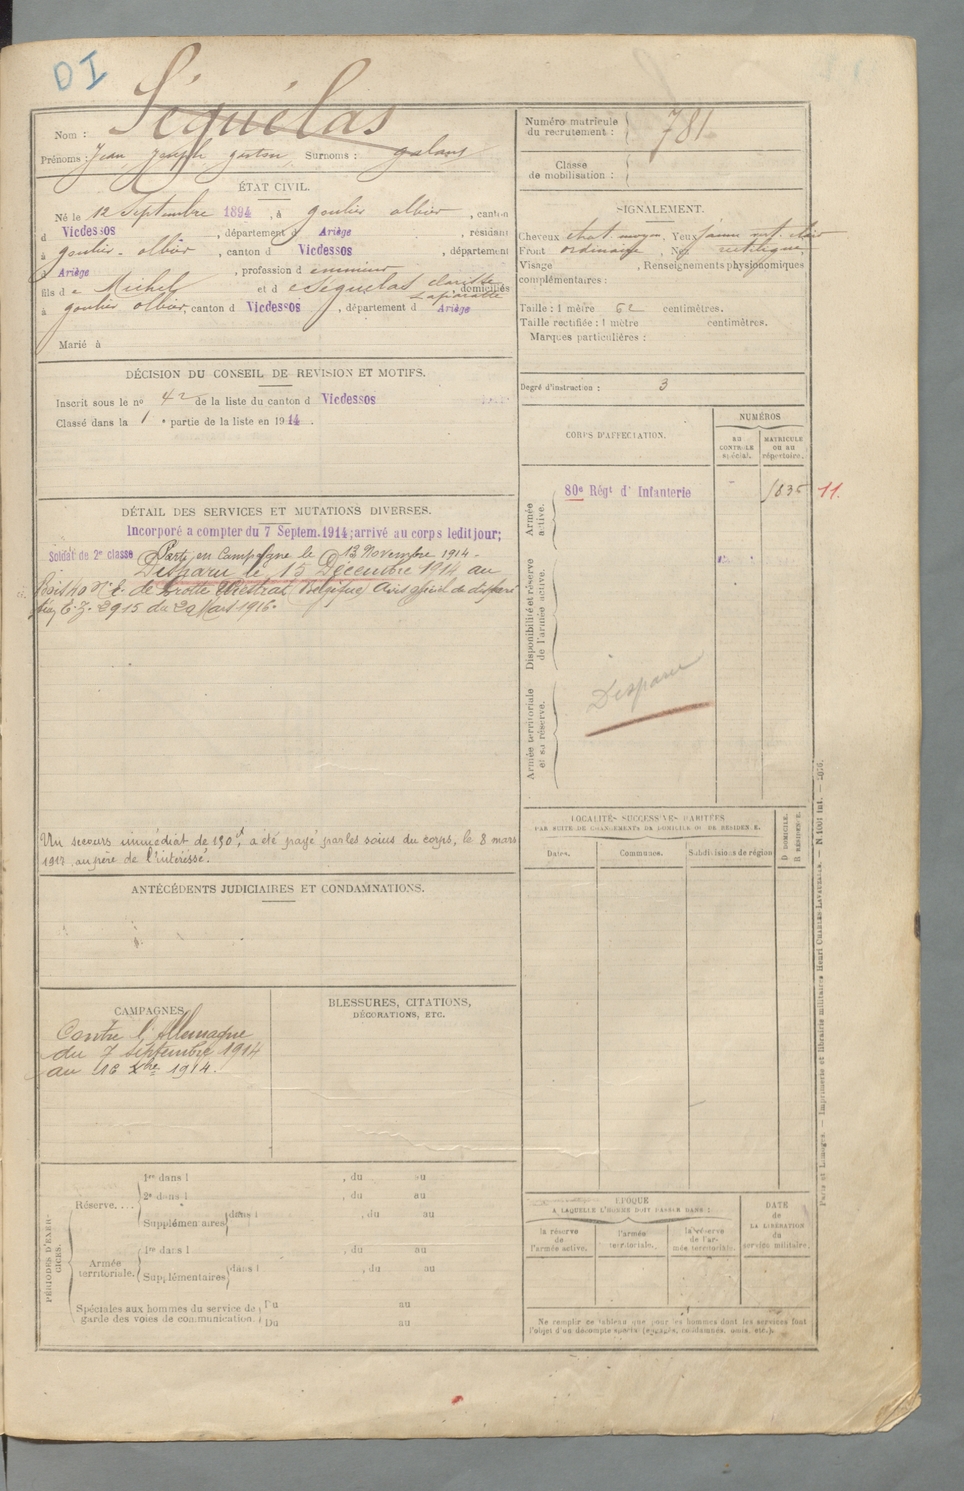 DI
Nom : Séquélas
Prénoms : Jean Joseph gaston Surnoms : galans
ÉTAT CIVIL.
Né le 12 Septembre 1894, à goulier olbier, canton
d Vicdessos, département d Ariège, résidant
à goulier-olbier, canton d Vicdessos, département
d Ariège, profession d
fils d e Michel et d e Séquélas clarisse domiciliés
à goulier olbier, canton d Vicdessos, département d Ariège
Marié à
DÉCISION DU CONSEIL DE REVISION ET MOTIFS.
Inscrit sous le no 42 de la liste du canton d Vicdessos
Classé dans la 1 e partie de la liste en 1914.
DÉTAIL DES SERVICES ET MUTATIONS DIVERSES.
Incorporé a compter du 7 Septem. 1914; arrivé au corps ledit jour;
Soldat de 2e classe Parti en Campagne le 13 Novembre 1914.
Disparu le 15 Décembre 1914 au
Bois 40 N.E. de (Belgique) Avis officiel de dispari
tion 2915 du 20 Mars 1916.
Un secours immédiat de 150f, a été payé par les soins du corps, le 8 mars
1917 au père de l'intéressé.
ANTÉCÉDENTS JUDICIAIRES ET CONDAMNATIONS.
CAMPAGNES
Contre l'Allemagne
du 7 septembre 1914
au 18 Xbre 1914.
BLESSURES, CITATIONS,
DÉCORATIONS, ETC.
PÉRIODES D'EXERCICES.
Réserve....
1re dans l , du au
2e dans l , du au
Supplémentaires dans l , du au
Armée territoriale.
1re dans l , du au
Supplémentaires dans l , du au
Spéciales aux hommes du service de garde des voies de communication.
Du au
Du au
Numéro matricule
du recrutement : 781
Classe
de mobilisation :
SIGNALEMENT.
Cheveux chat. moyen, Yeux jaune vert. clair
Front ordinaire, Nez rectiligne,
Visage , Renseignements physionomiques
complémentaires :
Taille : 1 mètre 62 centimètres.
Taille rectifiée : 1 mètre centimètres.
Marques particulières :
Degré d'instruction : 3
CORPS D'AFFECTATION.
NUMÉROS
AU CONTROLE spécial.
MATRICULE OU AU répertoire.
Armée active.
80e Régt d' Infanterie
11.
Disponibilité et réserve de l'armée active.
Armée territoriale et sa réserve.
Disparu
LOCALITÉS SUCCESSIVES HABITÉES
PAR SUITE DE CHANGEMENTS DE DOMICILE OU DE RÉSIDENCE.
Dates.
Communes.
Subdivisions de région
D DOMICILE.
R RÉSIDENCE.
ÉPOQUE
A LAQUELLE L'HOMME DOIT PASSER DANS :
la réserve de l'armée active.
l'armée territoriale.
la réserve de l'armée territoriale.
DATE de LA LIBÉRATION du service militaire.
Ne remplir ce tableau que pour les hommes dont les services font
l'objet d'un décompte spécial (engagés, condamnés, omis, etc.).
Paris et Limoges. — Imprimerie et librairie militaires Henri CHARLES-LAVAUZELLE. — N 1001 Int. —